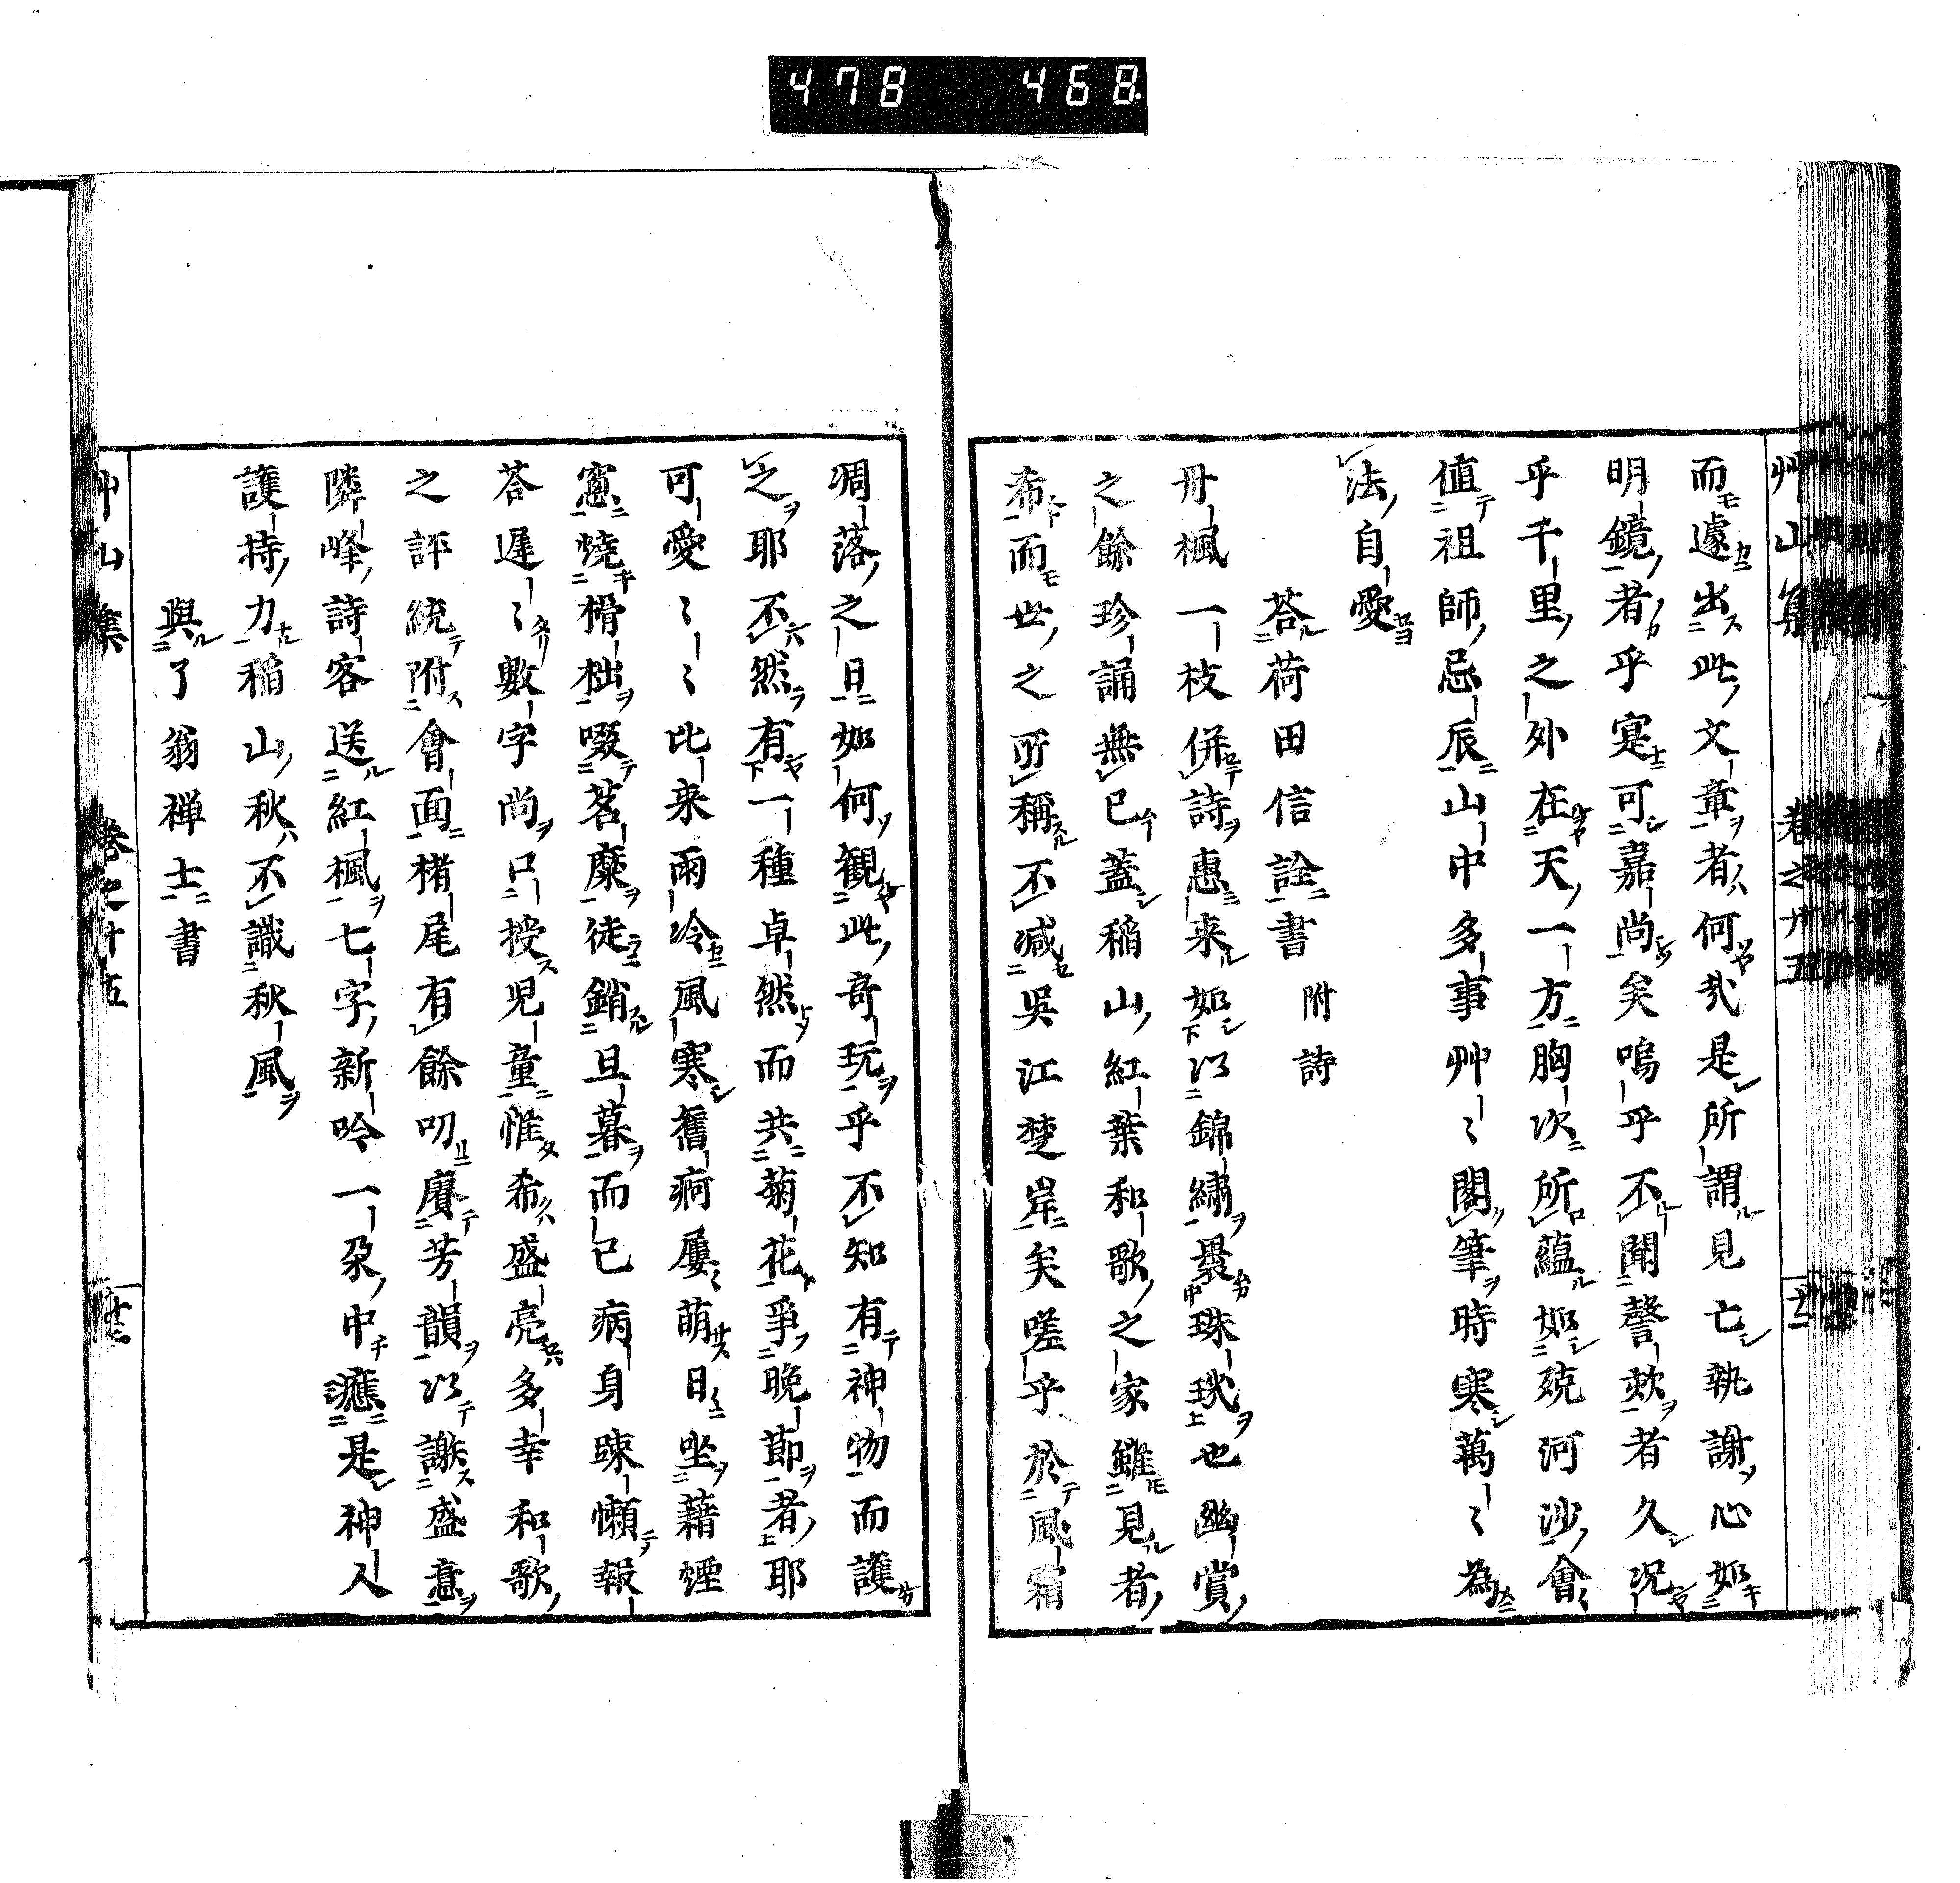 478 468.
而遽出此文章者何哉是所謂見亡執謝心如
明鏡者乎寔可嘉尚矣嗚乎不聞謦欬者久況
乎千里之外在天一方胸次所蘊如殑河沙會
值祖師忌辰山中多事艸〻閣筆時寒萬〻為
法自愛
荅荷田信詮書 附詩
丹楓一枝併詩惠来如以錦繡裹珠珖也幽賞
之餘珍誦無已蓋稲山紅葉和歌之家雖見者
希而世之所稱不減吳江楚岸矣嗟乎於風霜
凋落之日如何観此奇玩乎不知有神物而護
之耶不然有一種卓然而共菊花爭晩節者耶
可愛〻〻比来雨冷風寒舊痾屢萌日坐藉煙
窻燒榾柮啜茗糜徒銷旦暮而已病身疎懶報
荅遅〻數字尚口授児童惟希盛亮多幸和歌
之評統附會面楮尾有餘叨賡芳韻以謝盛意
隣峰詩客送紅楓七字新吟一朶中應是神人
護持力稲山秋不識秋風
與了翁禅士書
艸山集 卷之廿五